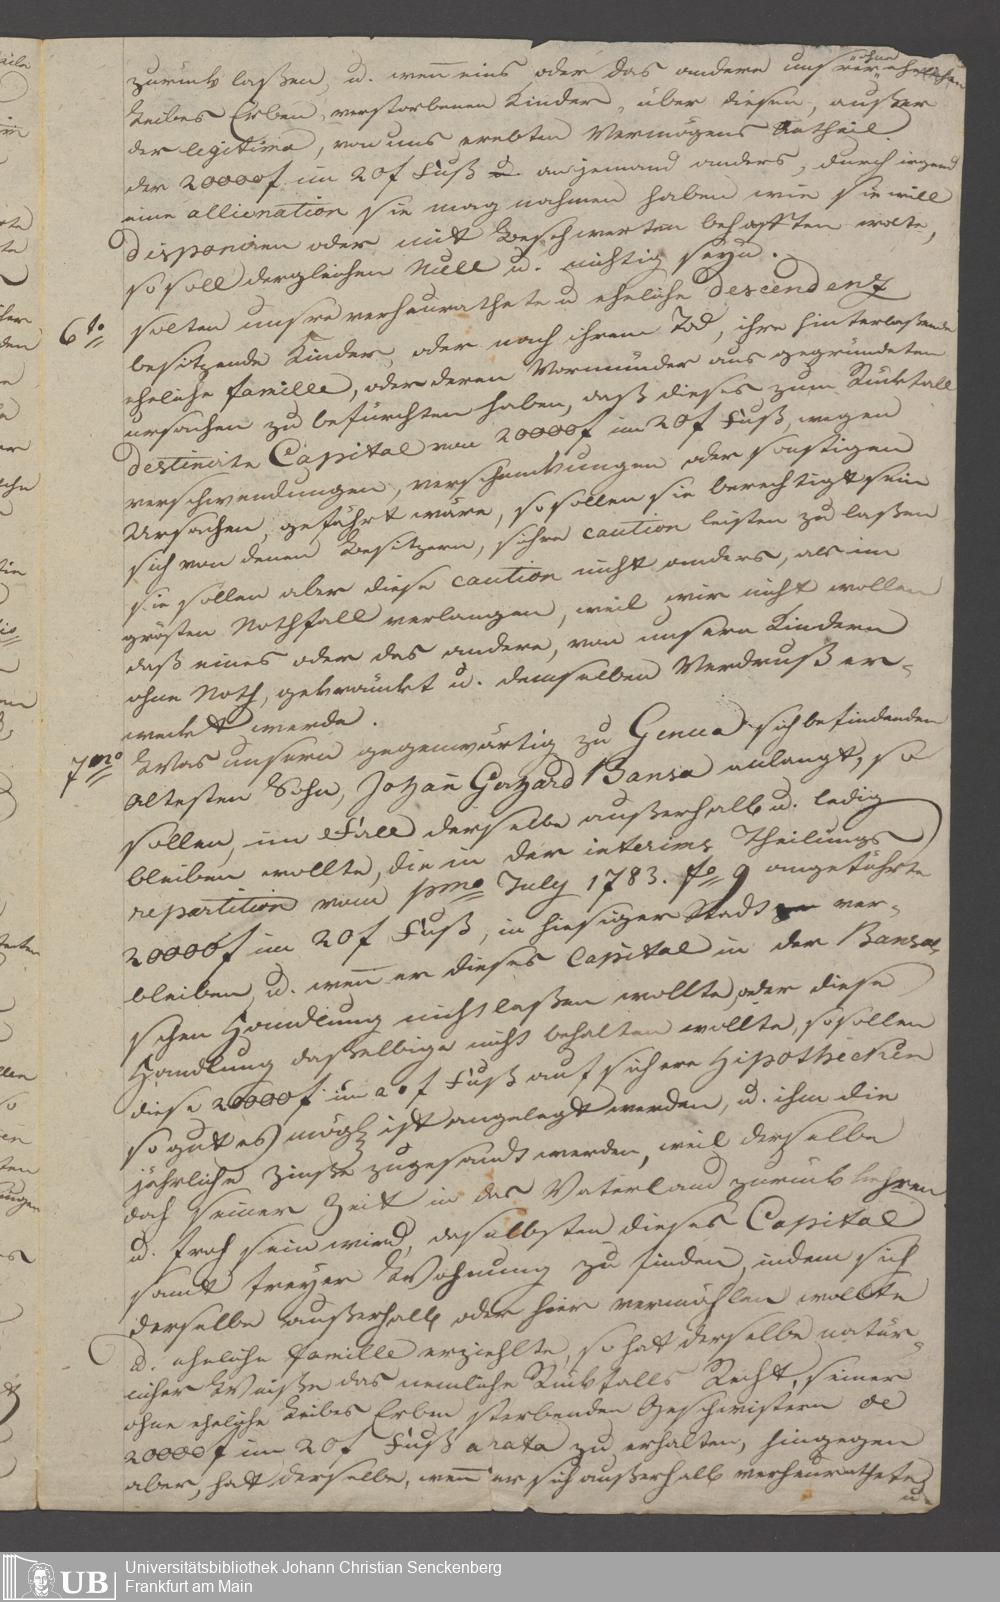 zurück laßen, u. wenn eins oder das andere unsrer ohne ehelichen
Leibes Erben, verstorbenen Kinder, über diesen, außer
der legitima, von uns erebten Vermögens Antheil
der 20000f. im 20f Fuß an jemand anders, durch irgend
eine allienation sie mag nahmen haben wie sie will
disponiren oder mit Beschwerten behafften wolte,
so soll dergleichen Null u. nichtig seyn.
6to solten unsre verheurathete u eheliche Descendenz
besitzende Kinder, oder nach ihrem Tod, ihre hinterlaßende
eheliche famille, oder deren Vormünder aus gegründeten
ursachen zu befürchten haben, daß dieses zum Rückfall
destinirte Capital von 20000f im 20f Fuß, wegen
verschwendungen, verschenkungen oder sonstigen
Ursachen, gefährt wäre, so sollen sie berechtigt sein
sich von denen Besitzern, sichre caution leisten zu laßen
sie sollen aber diese caution nicht anders, als im
grösten Nothfall verlangen, weil wir nicht wollen
daß eines oder das andere, von unsern Kindern
ohne Noth, gekränckt u. demselben Verdruß er-
weckt werde.
7mo Was unsern gegenwärtig zu Genua sich befindenden
ältesten Sohn, Johann Gerhard Bansa anlangt, so
sollen, im Fall derselbe außerhalb u. ledig
bleiben wollte, die in der interims Theilungs
repartition vom pmo July 1783. fo 9 angeführte
20000f im 20f Fuß, in hiesiger Stadt ver-
bleiben, u. wenn er dieses Capital in der Bansai-
schen Handlung nicht laßen wollte, oder diese
Handlung daßelbige nicht behalten wollte, so sollen
diese 20000f im 20f Fuß auf sichere Hipothecken
so gut es mögl ist angelegt werden, u. ihm die
jährliche Zinße zugesandt werden, weil derselbe
doch seiner Zeit in das Vaterland zurück kehren
u. froh sein wird, daselbsten dieses Capital
samt freyer Wohnung zu finden, indem sich
derselbe außerhalb oder hier vermählen wollte
u. eheliche famille erziehlte, so hat derselbe natür-
licher Weiße das nemliche Rückfalls Recht, seiner
ohne eheliche Leibes Erben sterbenden Geschwistern de
20000f im 20f Fuß arata zu erhalten, hingegen
aber, hat derselbe, wenn er sich außerhalb verheurathete
u
UB
Universitätsbibliothek Johann Christian Senckenberg
Frankfurt am Main